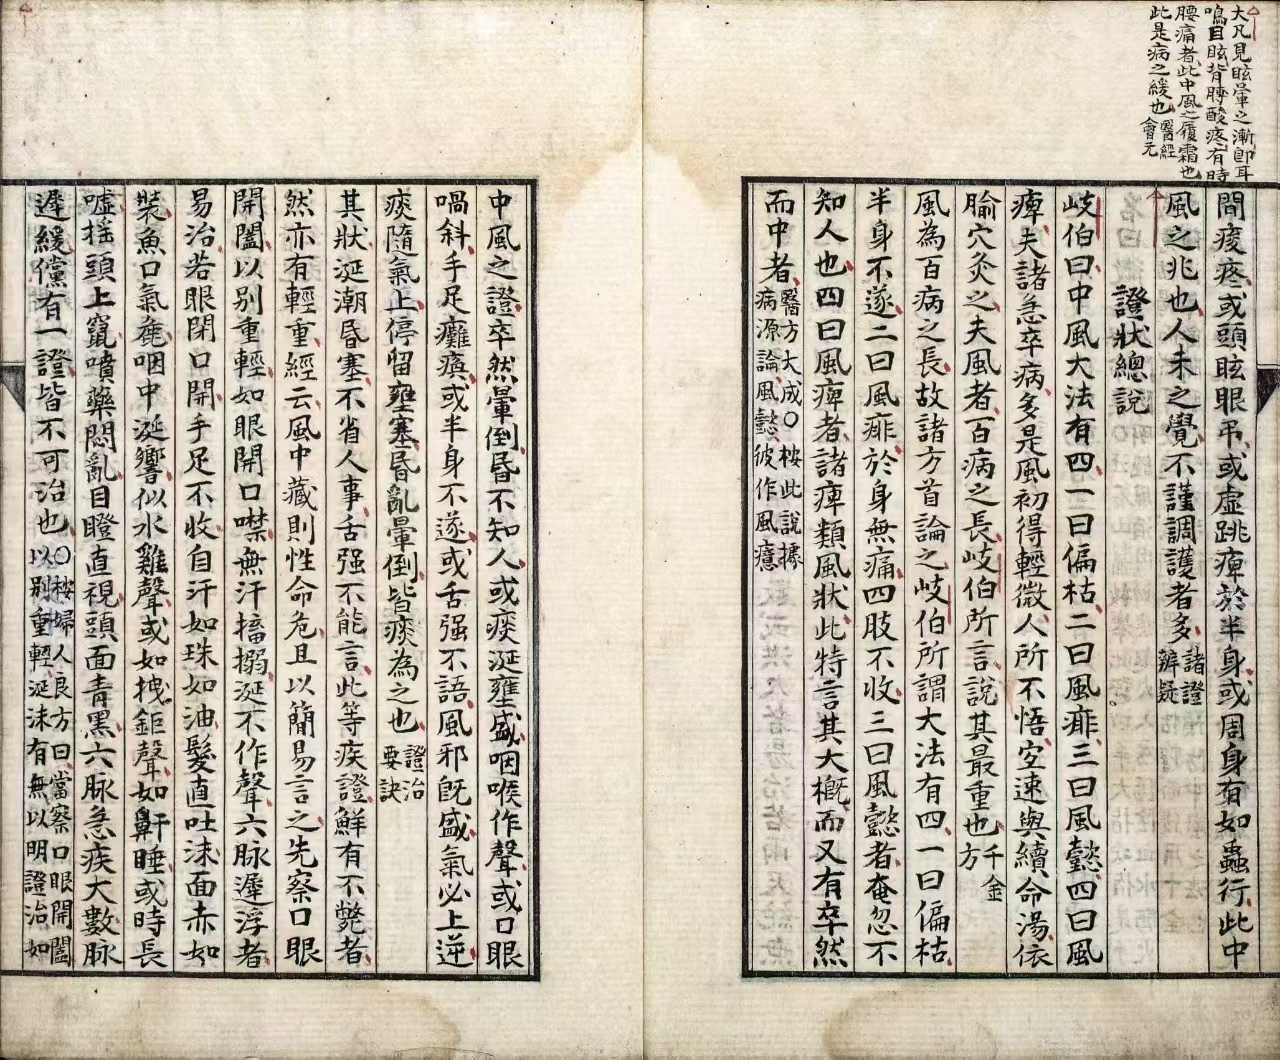 大凡見眩暈之漸卽耳
鳴目眩背膊酸疼有時
腰痛者此中風之履霜也
此是病之緩也醫經
會元
間痠疼或頭眩眼吊或虛跳痺於半身或周身有如蟲行此中
風之兆也人未之覺不謹調護者多諸證
辨疑
證狀總說
岐伯曰中風大法有四一曰偏枯二曰風痱三曰風懿四曰風
痺夫諸急卒病多是風初得輕微人所不悟宜速與續命湯依
腧穴灸之夫風者百病之長岐伯所言說其最重也千金
方
風為百病之長故諸方首論之岐伯所謂大法有四一曰偏枯
半身不遂二曰風痱於身無痛四肢不收三曰風懿者奄忽不
知人也四曰風痺者諸痺類風狀此特言其大槪而又有卒然
而中者醫方大成○桉此說據
病源論風懿彼作風癔
中風之證卒然暈倒昏不知人或痰涎壅盛咽喉作聲或口眼
喎斜手足癱瘓或半身不遂或舌强不語風邪旣盛氣必上逆
痰隨氣上停留壅塞昏亂暈倒皆痰為之也證治
要訣
其狀涎潮昏塞不省人事舌强不能言此等疾證鮮有不斃者
然亦有輕重經云風中藏則性命危且以簡易言之先察口眼
開闔以別重輕如眼開口噤無汗搐搦涎不作聲六脉遲浮者
易治若眼閉口開手足不收自汗如珠如油髮直吐沫面赤如
裝魚口氣麁咽中涎響似水雞聲或如拽鉅聲如鼾睡或時長
噓搖頭上竄噴藥悶亂目瞪直視頭面青黑六脉急疾大數脉
遲緩儻有一證皆不可治也○桉婦人良方曰當察口眼開闔
以別重輕涎沫有無以明證治如